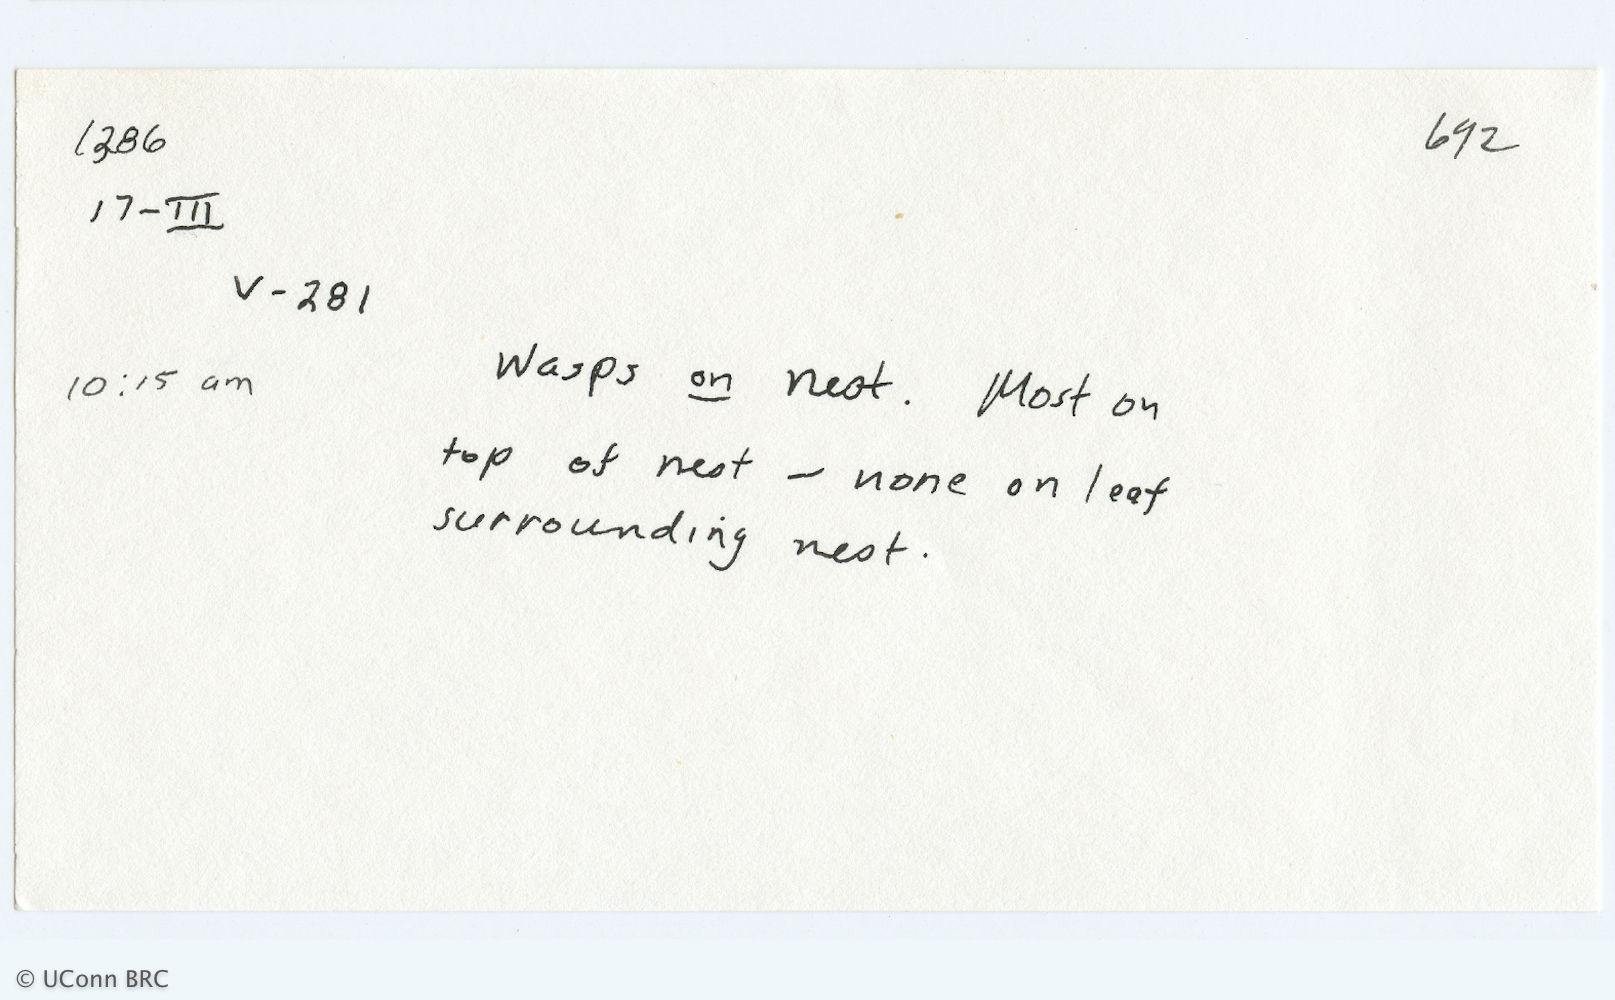 1286
692
17-III
V-281
10:15 am
Wasps on nest. Most on
top of nest - none on leaf
surrounding nest.
© UConn BRC